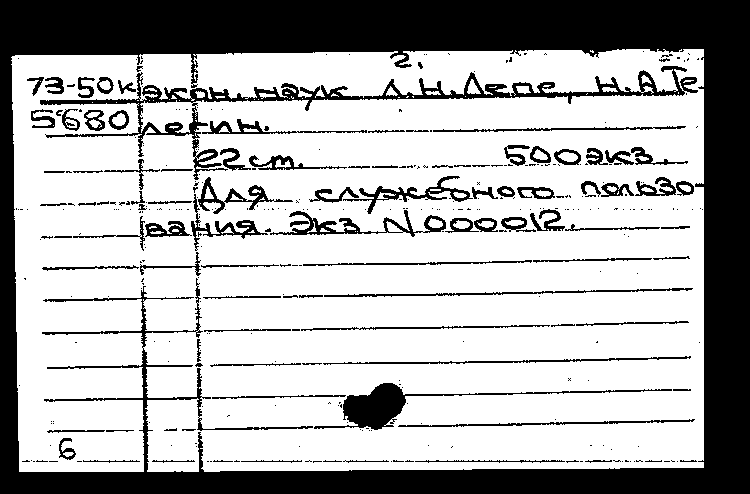 2.
73-50к экон. наук Л.Н.Лепе, Н.А.Те-
5680 легин.
22 ст. 500 экз.
Для служебного пользо-
вания. Экз N 000012.
6